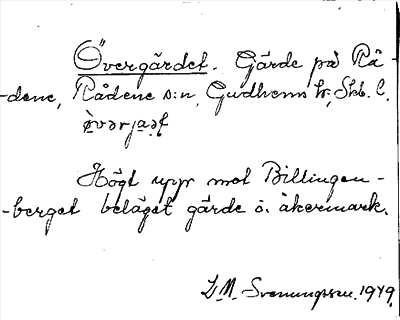 Övergärdet. Gärde på Rå-
-dene, Rådene s:n, Gudhems hr, Skb. l.
Högt upp mot Billingen-
-berget beläget gärde o. åkermark.
Svenungsson. 1949.